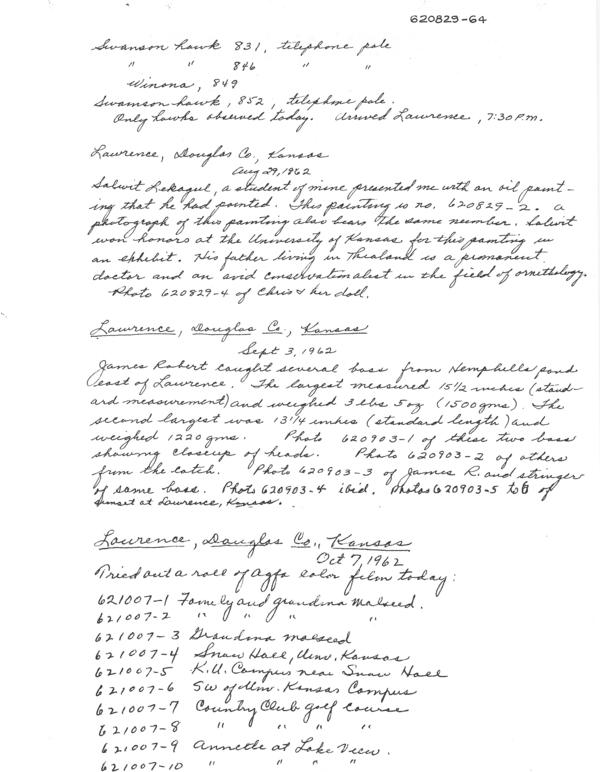 620829-64
Swanson hawk 831, telephone pole
" " 846 " "
Winona, 849
Swamson hawk, 852, telephone pole.
Only hawks observed today. Arrived Lawrence, 7:30 P.m.
Lawrence, Douglas Co., Kansas
Aug 29, 1962
Salwit Lekagul, a student of mine presented me with an oil paint-
ing that he had painted. This painting is no. 620829-2. A
photograph of this painting also bears the same number. Salwit
won honors at the University of Kansas for this painting in
an exhibit. His father living in Thialand is a promanent
doctor and an avid conservationalist in the field of ornethology.
Photo 620829-4 of Chris & her doll.
Lawrence, Douglas Co., Kansas
Sept 3, 1962
James Robert caught several bass from Hemphills pond
east of Lawrence. The largest measured 15 1/2 inches (stand-
ard measurement) and weighed 3 lbs 5 oz (1500 gms). The
second largest was 13 1/4 inches (standard length) and
weighed 1220 gms. Photo 620903-1 of these two bass
showing closeup of heads. Photo 620903-2 of others
from the catch. Photo 620903-3 of James R. and stringer
of same bass. Photo 620903-4 ibid. Photos 620903-5 to 6 of
sunset at Lawrence, Kansas.
Lawrence, Douglas Co., Kansas
Oct 7, 1962
Tried out a roll of Agfa color film today:
621007-1 Family and grandma Malseed.
621007-2 " " " "
621007-3 Grandma Malseed
621007-4 Snow Hall, Univ. Kansas
621007-5 K.U. Campus near Snow Hall
621007-6 SW of Univ. Kansas Campus
621007-7 Country Club golf course
621007-8 " " " "
621007-9 Annette at Lake View.
621007-10 " " " "